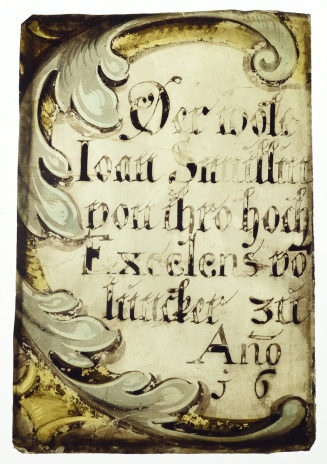 Der wole
Ioan
von ihro hoch
Excelens vo
luncker zu
Año
16